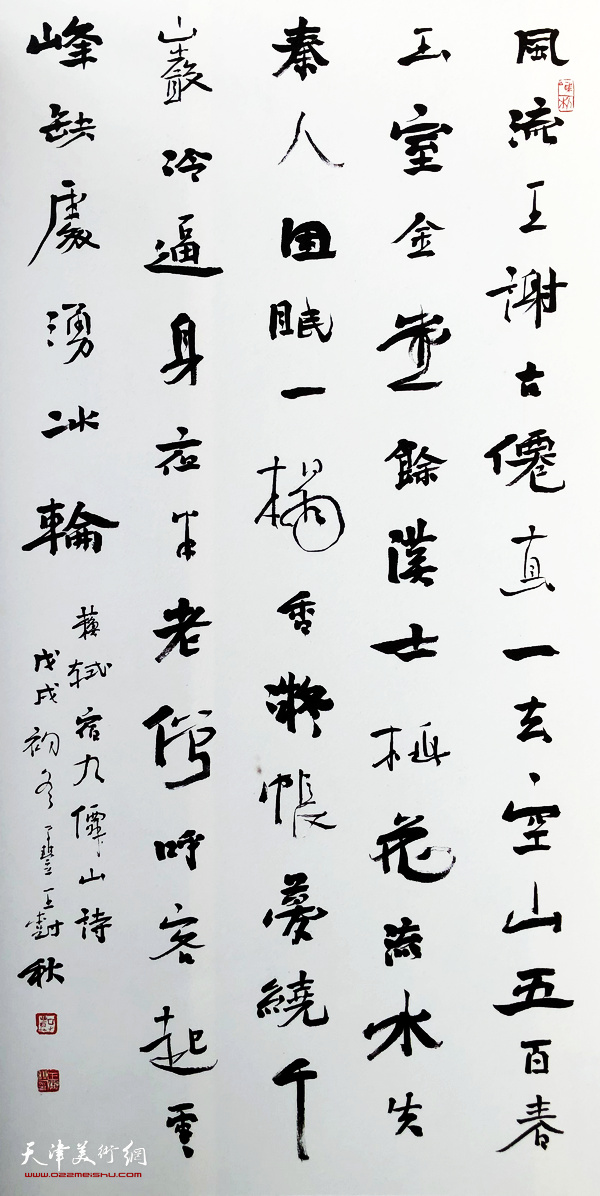 風流王謝古僊真一去空山五百春
玉室金堂餘漢士桃花流水失
秦人困眠一榻香凝帳夢繞千
巖冷逼身夜半老僧呼客起雲
峰缺處湧冰輪
蘇軾宿九僊山詩
戊戌初冬 豐王樹秋
天津美術網
www.022meishu.com